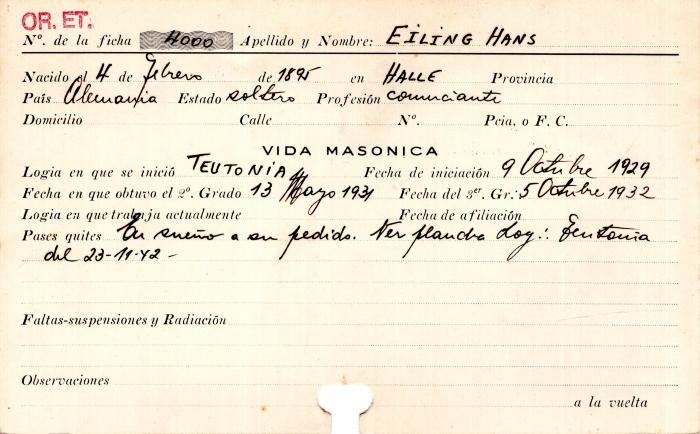 OR. ET.
Nº. de la ficha 4000 Apellido y Nombre: EILING HANS
Nacido el 4 de febrero de 1895 en HALLE Provincia
País Alemania Estado soltero Profesión comerciante
Domicilio Calle Nº. Pcia. o F. C.
VIDA MASONICA
Logia en que se inició TEUTONIA Fecha de iniciación 9 Octubre 1929
Fecha en que obtuvo el 2º. Grado 13 Mayo 1931 Fecha del 3er. Gr.: 5 Octubre 1932
Logia en que trabaja actualmente Fecha de afiliación
Pases quites En sueño a su pedido. Ver plancha Log∴ Teutonia
del 23-11-42 -
Faltas-suspensiones y Radiación
Observaciones
a la vuelta